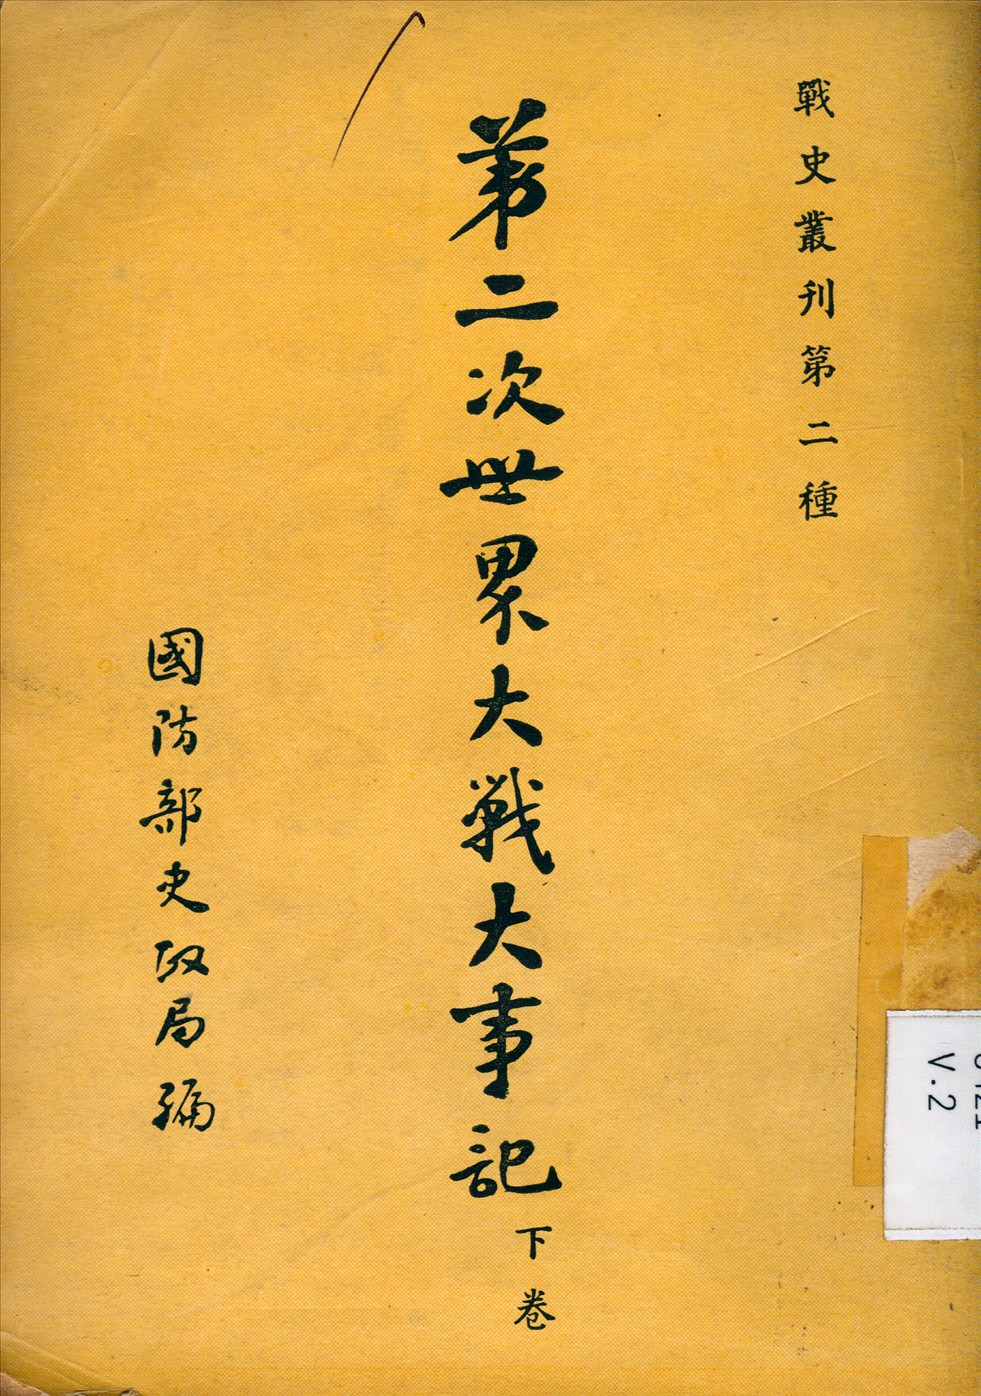 戰史叢刊第二種
第二次世界大戰大事記 下卷
國防部史政局編
V.2